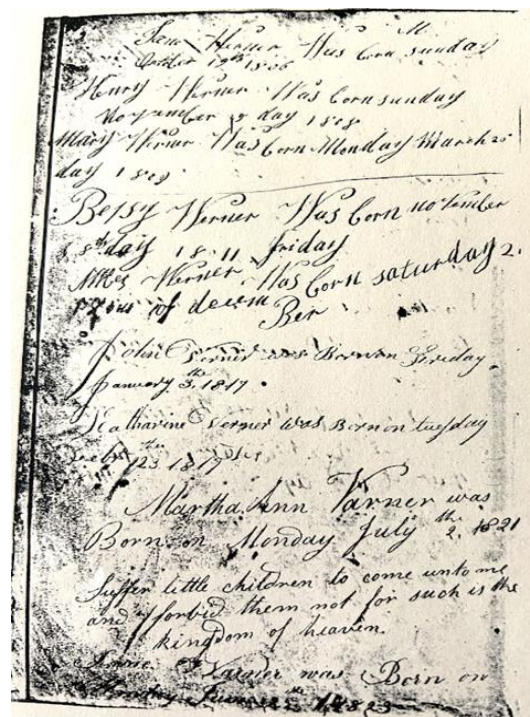 Werner Was born sunday
October 19th 1806
Henry Werner Was born sunday
November day 1808
Mary Werner Was born Monday March 20
day 1809
Betsy Werner Was born november
8th day 1811 friday
Werner Was born saturday 2
of decem
Ber
John Verner was Born on Friday
January 3th 1817
Katharine Verner was Born on tuesday
23 1819
Martha Ann Varner was
Born on Monday July the 2. 1821
Suffer little children to come unto me
and forbid them not for such is the
kingdom of heaven.
Varner was Born on
1823